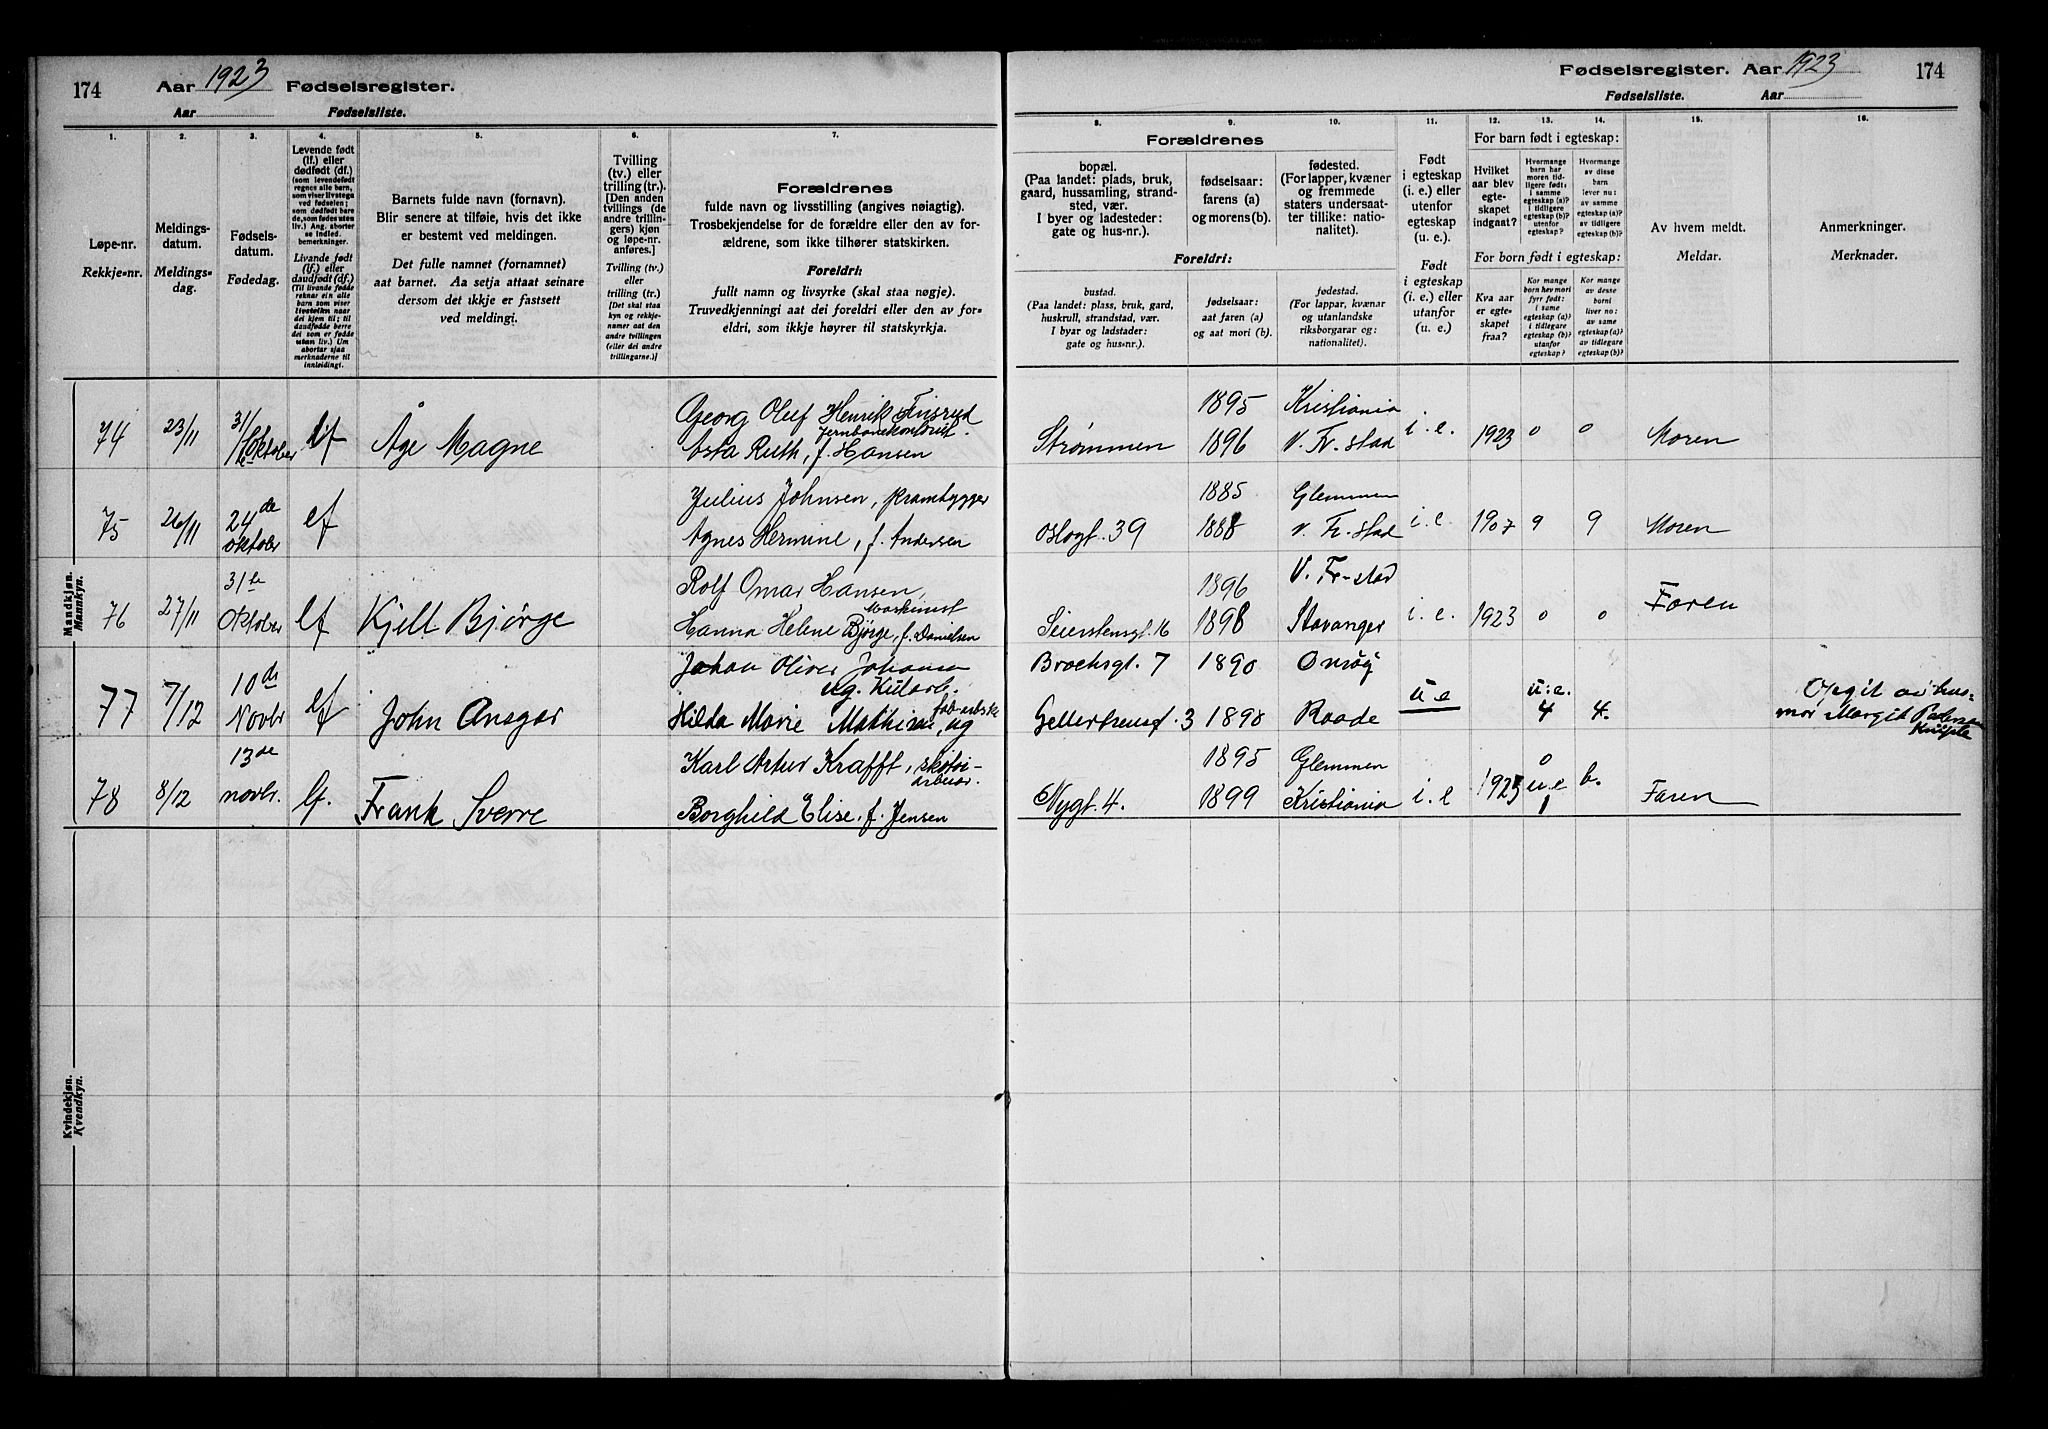 174 Aar 1923 Fødselsregister.
Aar Fødselsliste.
Fødselsregister. Aar 1923 174
Fødselsliste. Aar
1. 2. 3. 4. 5. 6. 7.
Løpe-nr.
Rekkje-nr.
Meldings-
datum.
Meldings-
dag.
Fødsels-
datum.
Fødedag.
Levende født
(lf.) eller
dødfødt (df.)
(som levendefødt
regnes alle barn,
som viser livstegn
ved fødselen;
som dødfødt bar-
de, som fødes uten
liv.) Ang. aborter
se indled.
bemerkninger.
Livande født
(lf.) eller
daudfødt (df.)
(Til livande fødde
reknar ein alle
born som viser
livsteikn naar
dei kjem til; til
daudfødde berre
dei som er fødde
utan liv.) Um
abortar sjaa
merknaderne til
innleidingi.
Barnets fulde navn (fornavn).
Blir senere at tilføie, hvis det ikke
er bestemt ved meldingen.
Det fulle namnet (fornamnet)
aat barnet. Aa setja attaat seinare
dersom det ikkje er fastsett
ved meldingi.
Tvilling
(tv.) eller
trilling (tr.).
[Den anden
tvillings (de
andre trillin-
gers) kjøn
og løpe-nr.
anføres.]
Tvilling (tv.)
eller
trilling (tr.)
[Det skal staa
kyn og rekkje-
numer aat den
andre tvillingen
(eller dei andre
trillingarne.)]
Forældrenes
fulde navn og livsstilling (angives nøiagtig).
Trosbekjendelse for de forældre eller den av for-
ældrene, som ikke tilhører statskirken.
Foreldri:
fullt namn og livsyrke (skal staa nøgje).
Truvedkjenningi aat dei foreldri eller den av for-
eldri, som ikkje høyrer til statskyrkja.
8. 9. 10. 11. 12. 13. 14. 15. 16.
Forældrenes
bopæl.
(Paa landet: plads, bruk,
gaard, hussamling, strand-
sted, vær.
I byer og ladesteder:
gate og hus-nr.).
fødselsaar:
farens (a)
og morens (b).
fødested.
(For lapper, kvæner
og fremmede
staters undersaat-
ter tillike: natio-
nalitet).
Foreldri:
bustad.
(Paa landet: plass, bruk, gard,
huskrull, strandstad, vær.
I byar og ladstader:
gate og hus-nr.).
fødselsaar:
aat faren (a)
og aat mori (b).
fødestad.
(For lappar, kvænar
og utanlandske
riksborgarar og:
nationalitet).
Født
i egteskap
(i. e.) eller
utenfor
egteskap
(u. e.).
Født
i egteskap
(i. e.) eller
utanfor
(u. e.).
For barn født i egteskap:
Hvilket
aar blev
egte-
skapet
indgaat?
Hvormange
barn har
moren tid-
ligere født:
i samme
egteskap (a)?
i tidligere
egteskap (b)?
utenfor
egteskap?
Hvormange
av disse
barn
lever nu:
av samme
egteskap (a)?
av tidligere
egteskap (b)?
For born født i egteskap:
Kva aar
er egte-
skapet
fraa?
Kor mange
born hev mori
fyrr født:
i same
egteskap (a)?
i tidlegare
egteskap (b)?
utanfor
egteskap?
Kor mange
av desse
borni
liver no:
av same
egteskap (a)?
av tidlegare
egteskap (b)?
Av hvem meldt.
Meldar.
Anmerkninger.
Merknader.
Mandkjøn.
Mannkyn.
74 23/11 31/te Oktober lf Åge Magne
Georg Oluf Henrik
Jernbanekontorist.
Asta Ruth, f. Hansen
1895 Kristiania
Strømmen 1896 V. Fr.stad i. e. 1923 0 0 Moren
75 26/11 24de oktober lf
Julius Johnsen, prambygger
Agnes Hermine, f. Andersen
1885 Glemmen
Oslogt. 39 1888 V. Fr.stad i. e. 1907 9 9 Moren
76 27/11 31te Oktober lf Kjell Bjørge
Rolf Omar Hansen,
Maskinist
Hanna Helene Bjørge, f. Danielsen
1896 V. Fr-stad
Seierstensgt. 16 1898 Stavanger i. e. 1923 0 0 Faren
77 7/12 10de Novbr lf John Ansgar
Johan Oliver Johansen
ug.
Hilda Marie Mathisen, ug
fab-arbske
Brochsgt. 7 1890 Onsøy
3 1890 Raade u e u. e. 4 4.
Opgit av hus-
mor Margit Pedersen
78 8/12 13de novbr. lf. Frank Sverre
Karl Artur Krafft, skotøi-
arbeider.
Borghild Elise f. Jensen
1895 Glemmen
Nygt. 4. 1899 Kristiania i. e 1923 0 u e 1 b. Faren
Kvindekjøn.
Kvendkyn.